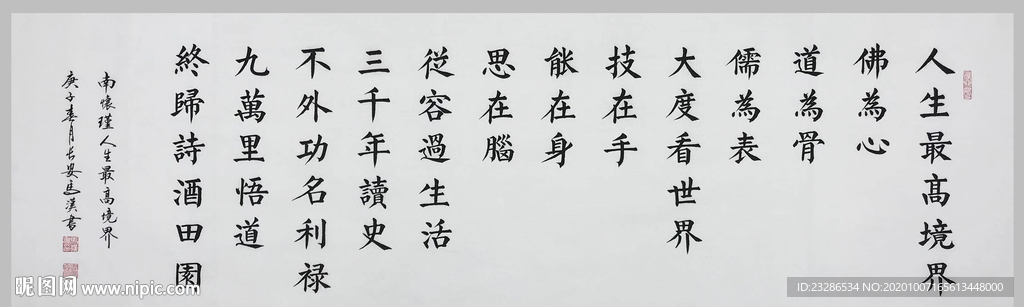 人生最高境界
佛為心
道為骨
儒為表
大度看世界
技在手
能在身
思在腦
從容過生活
三千年讀史
不外功名利禄
九萬里悟道
終歸詩酒田園
南懷瑾人生最高境界
庚子春月長安馬漢書
昵图网 www.nipic.com
ID:23286534 NO:20201007165613448000